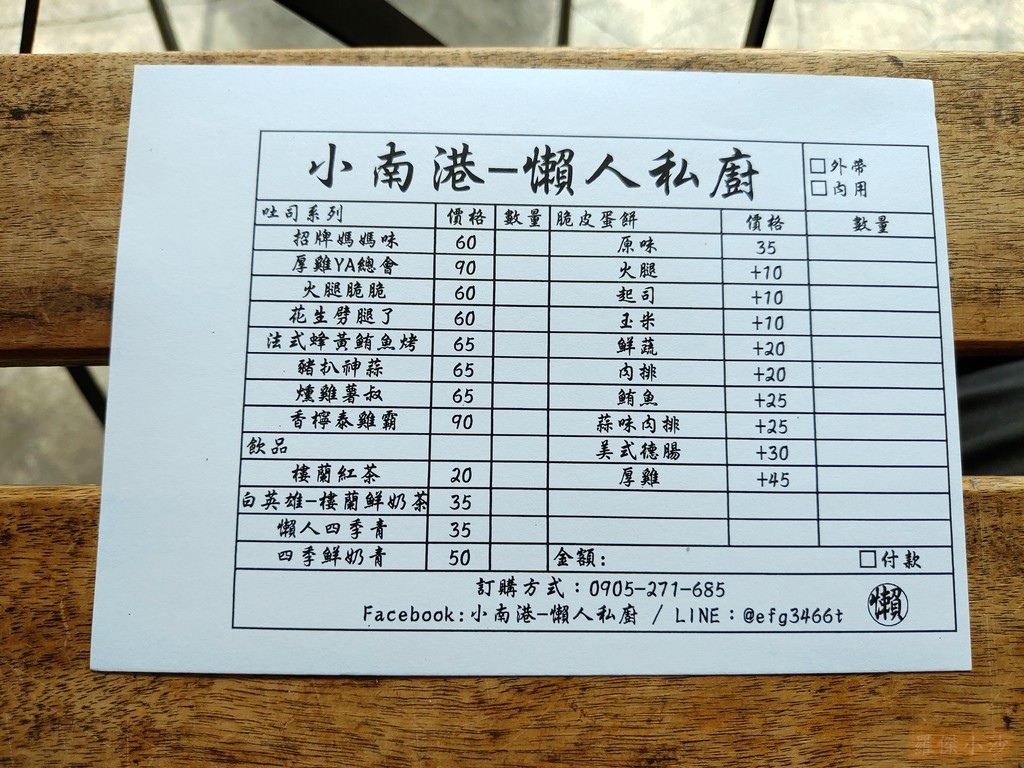 小南港-懶人私廚
□外帶
□內用
吐司系列 價格 數量 脆皮蛋餅 價格 數量
招牌媽媽味 60 原味 35
厚雞YA總會 90 火腿 +10
火腿脆脆 60 起司 +10
花生劈腿了 60 玉米 +10
法式蜂黃鮪魚烤 65 鮮蔬 +20
豬扒神蒜 65 肉排 +20
燻雞薯叔 65 鮪魚 +25
香檸泰雞霸 90 蒜味肉排 +25
飲品 美式德腸 +30
樓蘭紅茶 20 厚雞 +45
白英雄-樓蘭鮮奶茶 35
懶人四季青 35
四季鮮奶青 50 金額: □付款
訂購方式：0905-271-685
Facebook:小南港-懶人私廚 / LINE：@efg3466t
懶